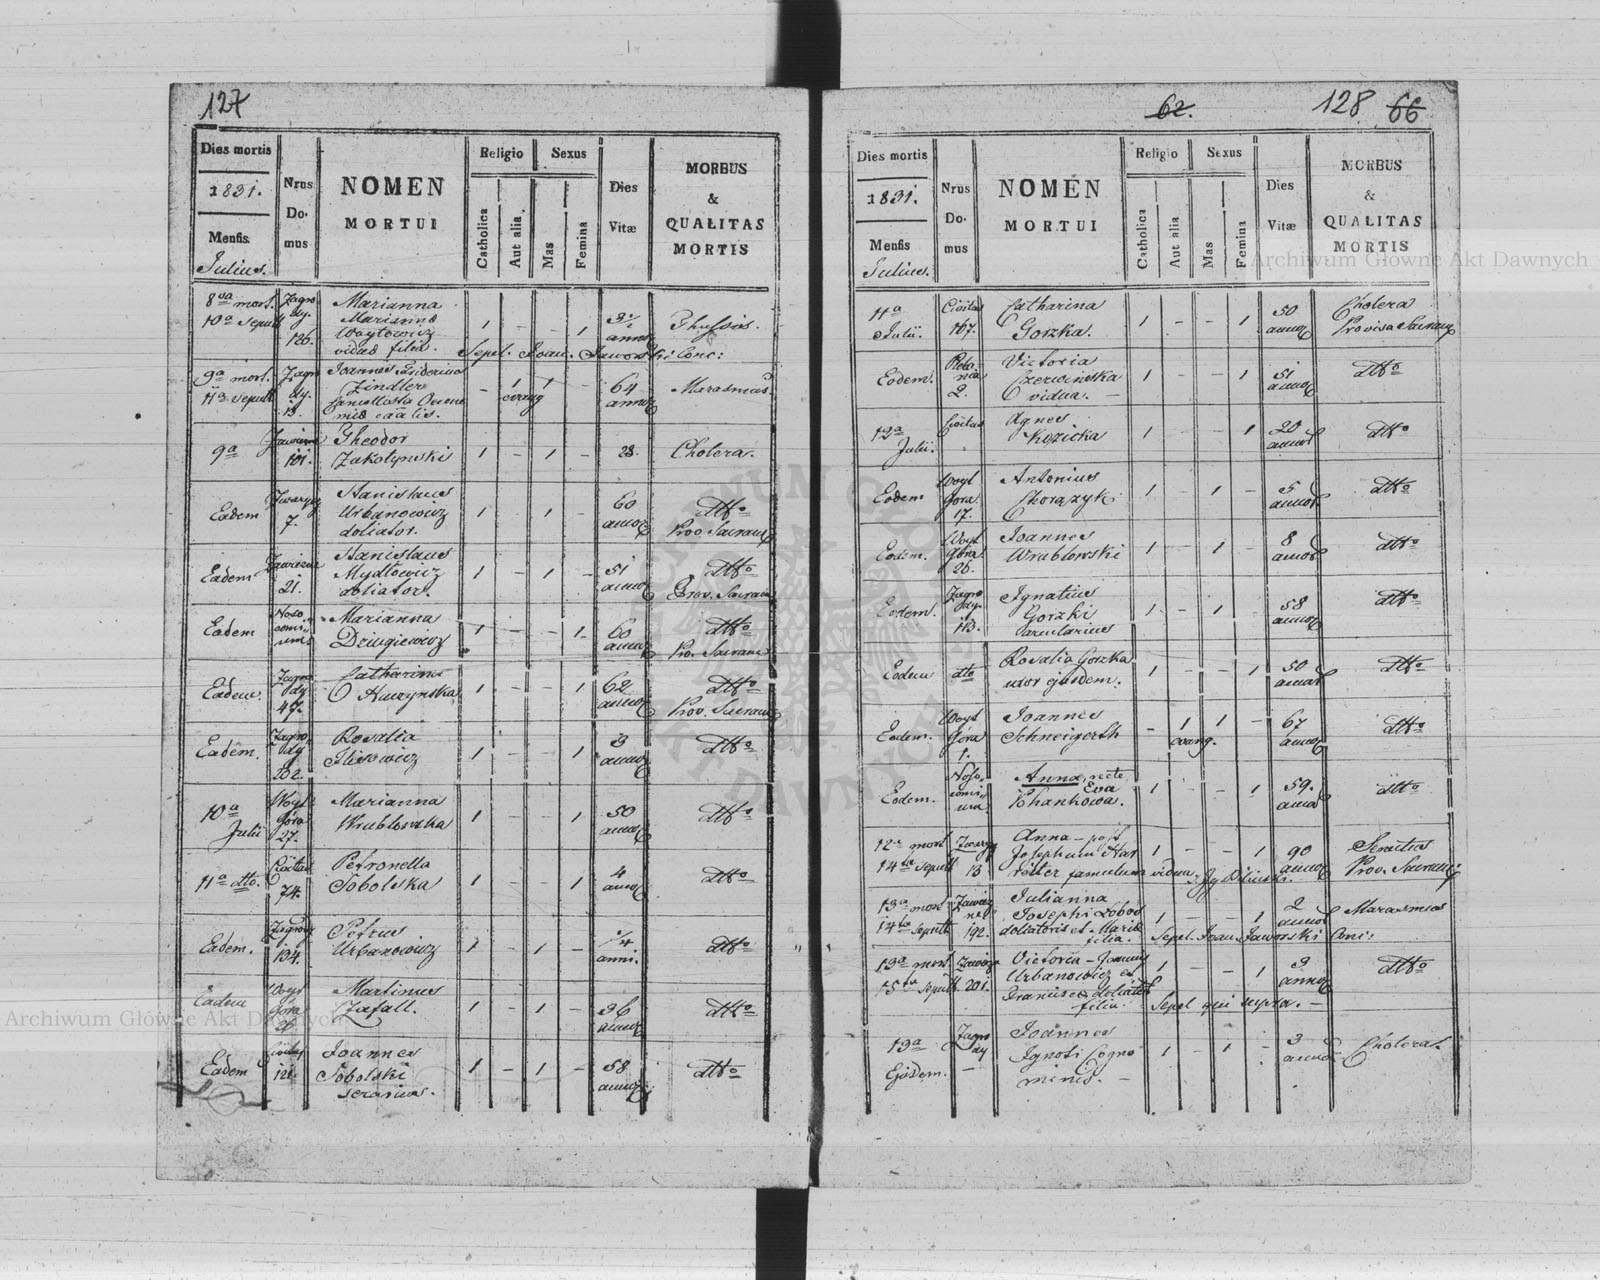 127
Dies mortis
1831.
Mensis
Julius.
Nrus
Do-
mus
NOMEN
MORTUI
Religio
Catholica
Aut alia.
Sexus
Mas
Femina
Dies
Vitæ
MORBUS
&
QUALITAS
MORTIS
8va mort.
10a sepult
Zagro
dy.
126.
Marianna
Marianna
Woytowicz
viduae filia.
1 - - 1
anni
Sepel. Joan. Jaworski Conc:
9a mort.
11a sepult
Zagro
dy.
13.
Joannes
Zindler
- 1 1 -
evang
64
annor
Marasmus
9a
101.
Theodor
Zakolynski
1 - 1 -
28.
Cholera.
Eadem
7.
Stanislaus
Urbanowicz
doliator.
1 - 1 -
60
annor
dtto
Prov. Sacram
Eadem
21.
Stanislaus
Mydlowicz
doliator.
1 - 1 -
51
annor
dtto
Prov. Sacram
Eadem
Noso
comi
um
Marianna
Dziugiewicz
1 - - 1
60
annor
dtto
Pro. Sacram
Eadem.
Zagro
dy
47.
Catharina
1 - - 1
62
annor
dtto
Prov. Sacram
Eadem.
Zagro
dy
202.
Rosalia
Ilisowicz
1 - - 1
3
annor
dtto
10a
Julii
Woyt
Góra
27.
Marianna
Wrublowska
1 - - 1
50
annor
dtto
11a dtto.
Civitas
74.
Petronella
Sobolska
1 - - 1
4
annor
dtto
Eadem.
Zagrody
194.
Petrus
Urbanowicz
1 - 1 -
1/4
anni.
dtto
Eadem
Woyt
Góra
26
Martinus
Zafall.
1 - 1 -
36
annor
dtto
Eadem
Civitas
121.
Joannes
Sobolski
1 - 1 -
58
annor
dtto
62.
128
66
Dies mortis
1831.
Mensis
Julius.
Nrus
Do-
mus
NOMEN
MORTUI
Religio
Catholica
Aut alia
Sexus
Mas
Femina
Dies
Vitæ
MORBUS
&
QUALITAS
MORTIS
11a
Julii.
Civitas
167.
Catharina
Gorzka.
1 - - 1
50
annor
Cholera
Provisa Sacram
Eodem.
2.
Victoria
Czerwinska
vidua.
1 - - 1
51
annor
dtto
12a
Julii.
Civitas
Agnes
Kozicka
1 - - 1
20
annor
dtto
Eodem
Woyt
Gora
17.
Antonius
Chorązyk
1 - 1 -
5
annor
dtto
Eodem.
Woyt
Góra
26.
Joannes
Wrublowski
1 - 1 -
8
annor
dtto
Eodem.
Zagro
dy.
113.
Ignatius
Gorzki
arcularius
1 - 1 -
58
annor
dtto
Eodem
dtto
Rosalia Gorzka
uxor ejusdem.
1 - - 1
50
annor
dtto
Eodem.
Woyt
Góra
1.
Joannes
Schneigerth
- 1 1 -
evang.
67
annor
dtto
Eodem.
Noso
comi
um
Anna, recte
Eva
Chankowa.
1 - - 1
59.
annor
dtto
12a mort
14ta sepult
13
Anna - post
Josephum
famulum vidua.
1 - - 1
90
annor
Senectus
Prov. Sacram
13a mort
14ta sepult
192.
Julianna
Josephi Lobos
doliatoris et Mariae
filia.
1 - - 1
2
annor
Marasmus
Sepel. Joan. Jaworski Conc:
13a mort
15ta sepult
201.
Victoria - Joannis
Urbanowicz et
Franciscae
filia
1 - - 1
3
annor
dtto
Sepel qui supra. -
13a
Ejusdem.
Zagro
dy
-
Joannes
Ignoti Cogno
minis. -
1 - 1 -
3
annor
Cholera.
Archiwum Główne Akt Dawnych
Archiwum Główne Akt Dawnych